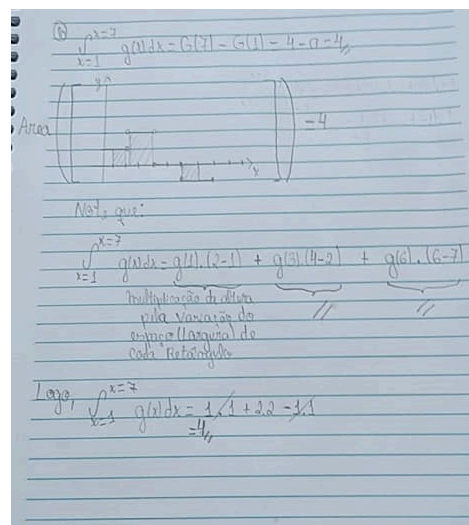 ∫_{x=1}^{x=7} g(x)dx = G(7) - G(1) = 4 - 0 = 4//
Area
y
x
= 4
Note que:
∫_{x=1}^{x=7} g(x)dx = g(1).(2-1) + g(3).(4-2) + g(6).(6-7)
multiplicação da altura // //
pela variação do
espaço (largura) de
cada Retângulo
Logo, ∫_{x=1}^{x=7} g(x)dx = 1.1 + 2.2 - 1.1
= 4//